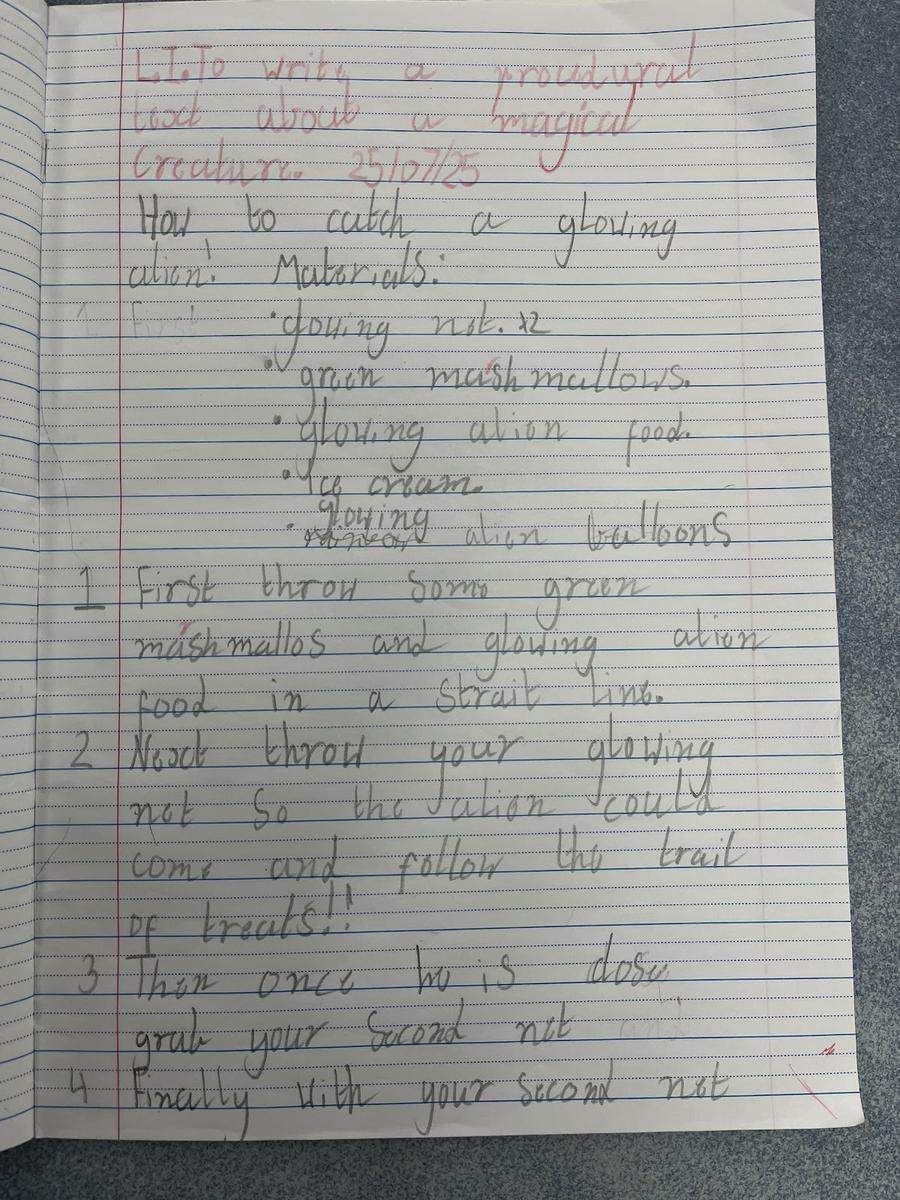 L.I.To write a procedural
text about a magical
Creature. 25/07/25
How to catch a glowing
alien! Materials:
1 First
• glowing net. x2
• green mashmallows.
• glowing alien food.
• Ice cream.
• glowing
alien balloons
1 First throw some green
mashmallos and glowing alien
food in a strait line.
2 Next throw your glowing
net so the alien could
come and follow the trail
of treats!!
3 Then once he is close
grab your second net and
4 Finally with your second net